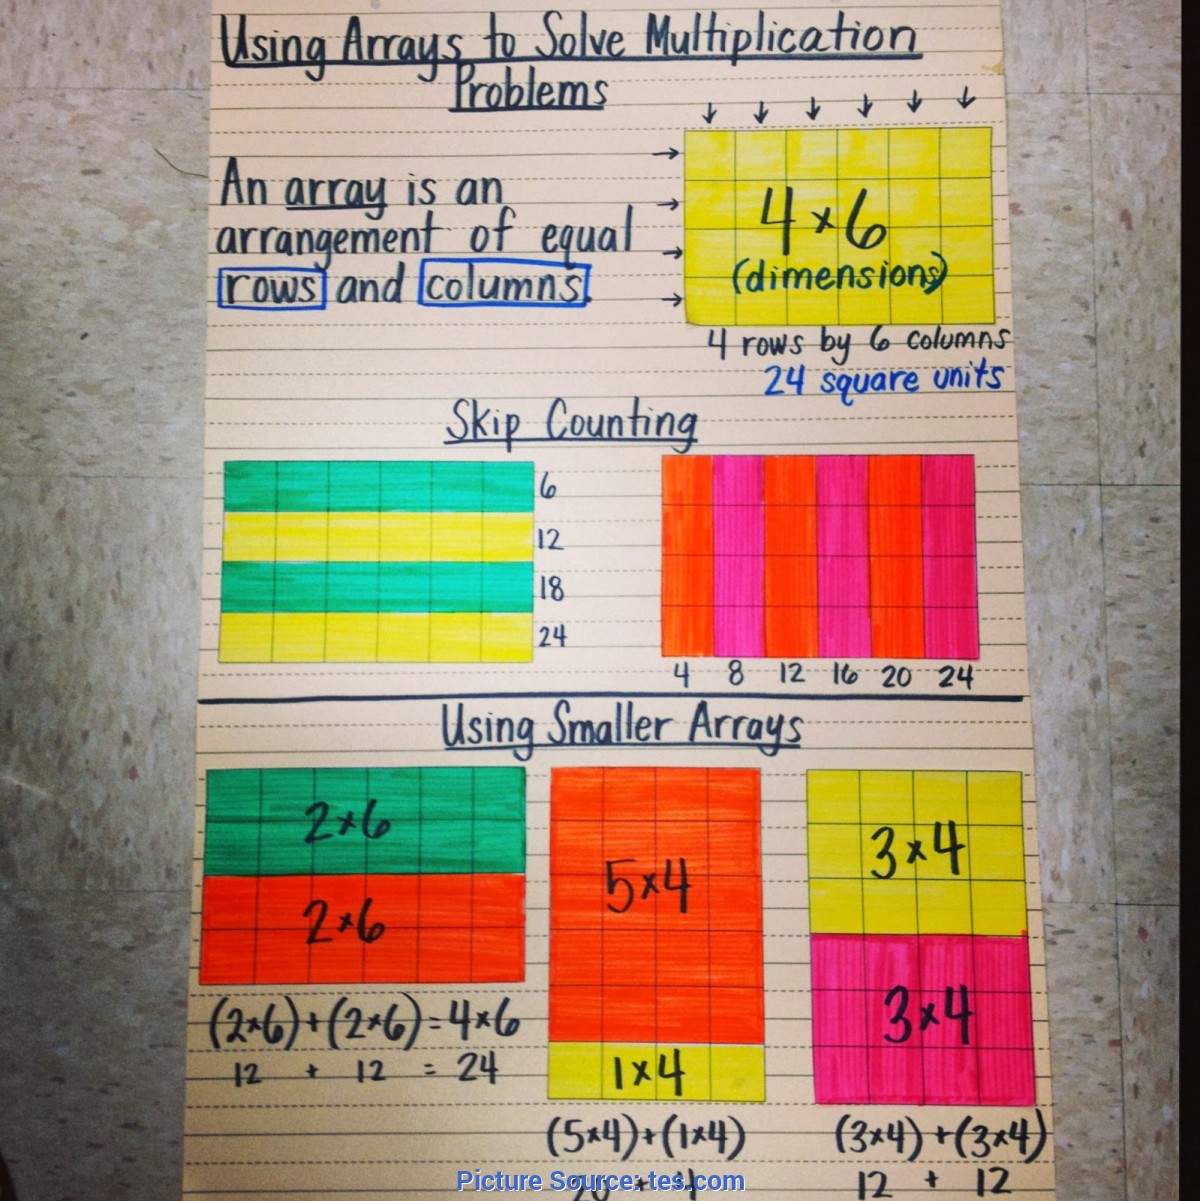 Using Arrays to Solve Multiplication
Problems
An array is an
arrangement of equal
rows and columns.
4×6
(dimensions)
4 rows by 6 columns
24 square units
Skip Counting
6
12
18
24
4 8 12 16 20 24
Using Smaller Arrays
2×6
2×6
(2×6)+(2×6)=4×6
12 + 12 = 24
5×4
1×4
(5×4)+(1×4)
20 + 4
3×4
3×4
(3×4)+(3×4)
12 + 12
Picture Source: tes.com